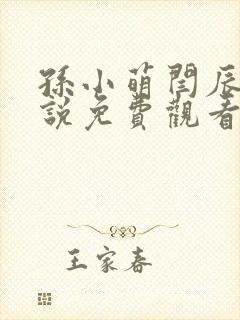 孫小萌閆辰
說免費觀看
王家春